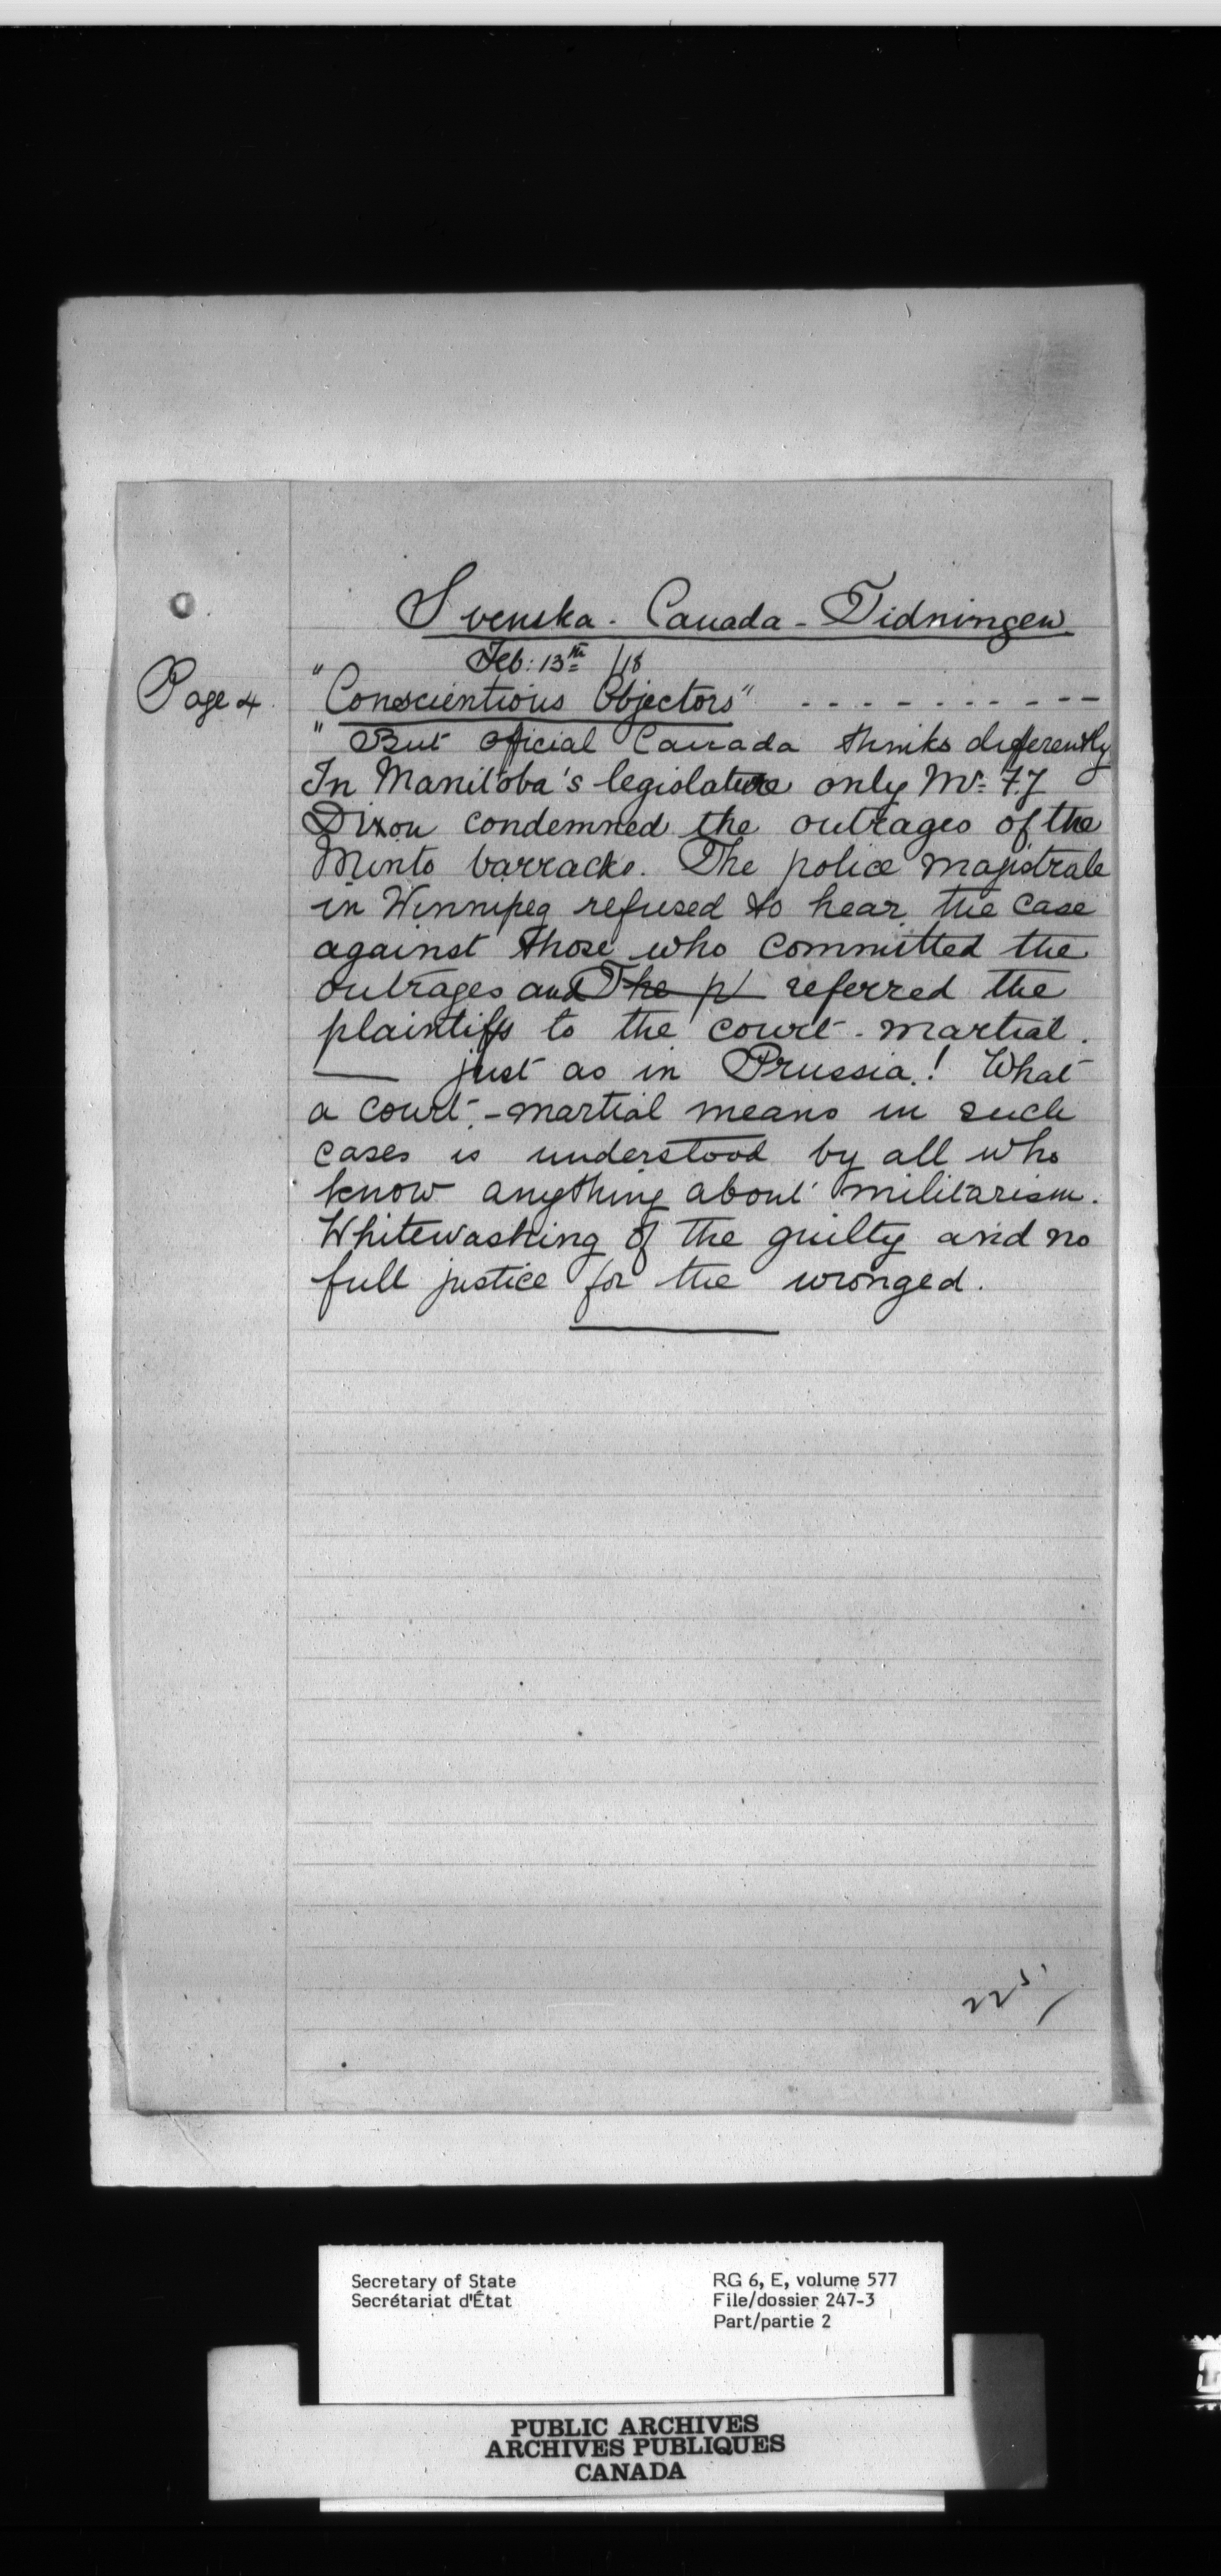 Svenska - Canada - Tidningen
Feb: 13th /18
Page 4. "Conscientious Objectors" - - - - - - - - - -
" But official Canada thinks differently
In Manitoba's legislature only Mr. F.J
Dixon condemned the outrages of the
Minto barracks. The police magistrate
in Winnipeg refused to hear the case
against those who committed the
outrages and The p referred the
plaintiffs to the court-martial.
— just as in Prussia! What
a court-martial means in such
cases is understood by all who
know anything about militarism.
Whitewashing of the guilty and no
full justice for the wronged.
225
Secretary of State
Secrétariat d'État
RG 6, E, volume 577
File/dossier 247-3
Part/partie 2
PUBLIC ARCHIVES
ARCHIVES PUBLIQUES
CANADA